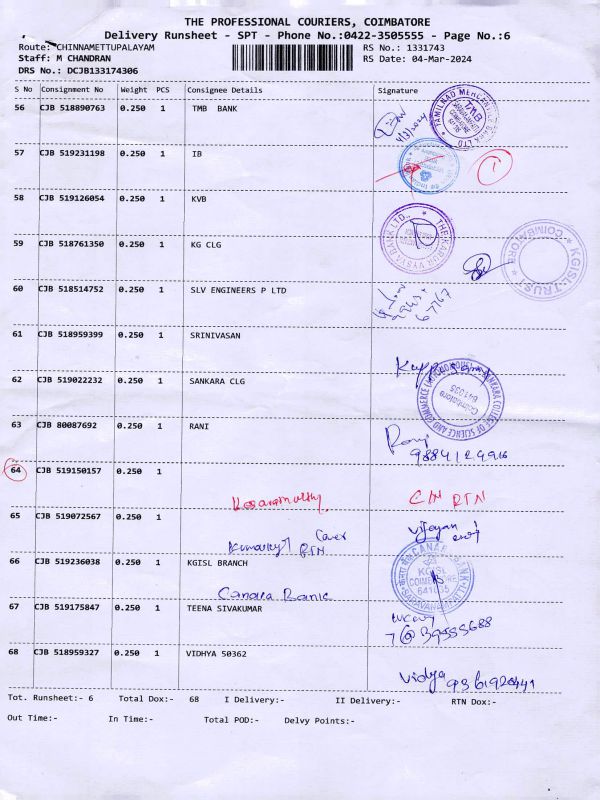 THE PROFESSIONAL COURIERS, COIMBATORE
Delivery Runsheet - SPT - Phone No.:0422-3505555 - Page No.:6
Route: CHINNAMETTUPALAYAM RS No.: 1331743
Staff: M CHANDRAN RS Date: 04-Mar-2024
DRS No.: DCJB133174306
S No Consignment No Weight PCS Consignee Details Signature
56 CJB 518890763 0.250 1 TMB BANK
4/3/2024
TAMILNAD MERCANTILE BANK LTD
57 CJB 519231198 0.250 1 IB
1
58 CJB 519126054 0.250 1 KVB
THE KARUR VYSYA BANK LTD.,
59 CJB 518761350 0.250 1 KG CLG
KGISL TRUST COIMBATORE
60 CJB 518514752 0.250 1 SLV ENGINEERS P LTD
61 CJB 518959399 0.250 1 SRINIVASAN
62 CJB 519022232 0.250 1 SANKARA CLG
SANKARA COLLEGE OF SCIENCE AND COMMERCE
Coimbatore
641035
63 CJB 80087692 0.250 1 RANI
Rani
64 CJB 519150157 0.250 1
C/N RTN
65 CJB 519072567 0.250 1
Cover
RTN
Vijayan
66 CJB 519236038 0.250 1 KGISL BRANCH
Canara Bank
CANARA BANK
KGISL
COIMBATORE
641035
SARAVANAMPATTI
67 CJB 519175847 0.250 1 TEENA SIVAKUMAR
68 CJB 518959327 0.250 1 VIDHYA 50362
Vidya 9361920441
Tot. Runsheet:- 6 Total Dox:- 68 I Delivery:- II Delivery:- RTN Dox:-
Out Time:- In Time:- Total POD:- Delvy Points:-